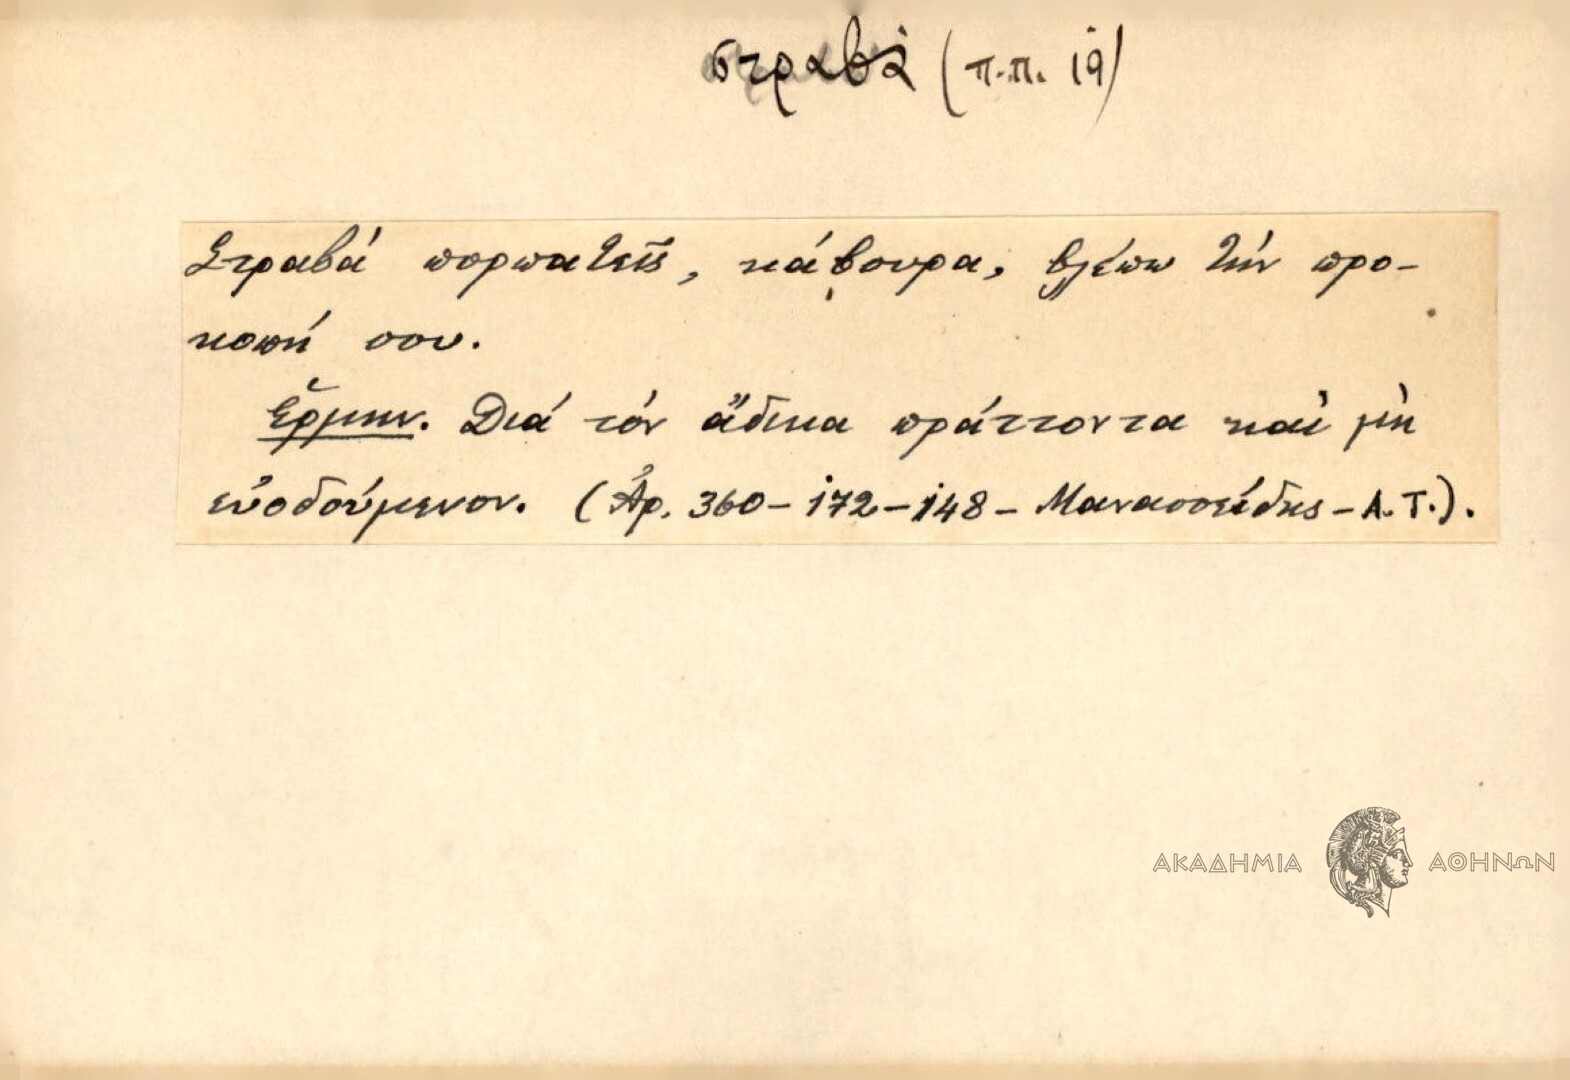 στραβὰ (π.π. 19)
Στραβά πορπατεῖς, κάβουρα, βλέπω τήν προ-
κοπή σου.
Ἑρμην. Διά τόν ἄδικα πράττοντα καί μὴ
εὐοδούμενον. (Ἀρ. 360-172-148- Μανασσείδης - Α.Τ.).
ΑΚΑΔΗΜΙΑ ΑΘΗΝΩΝ